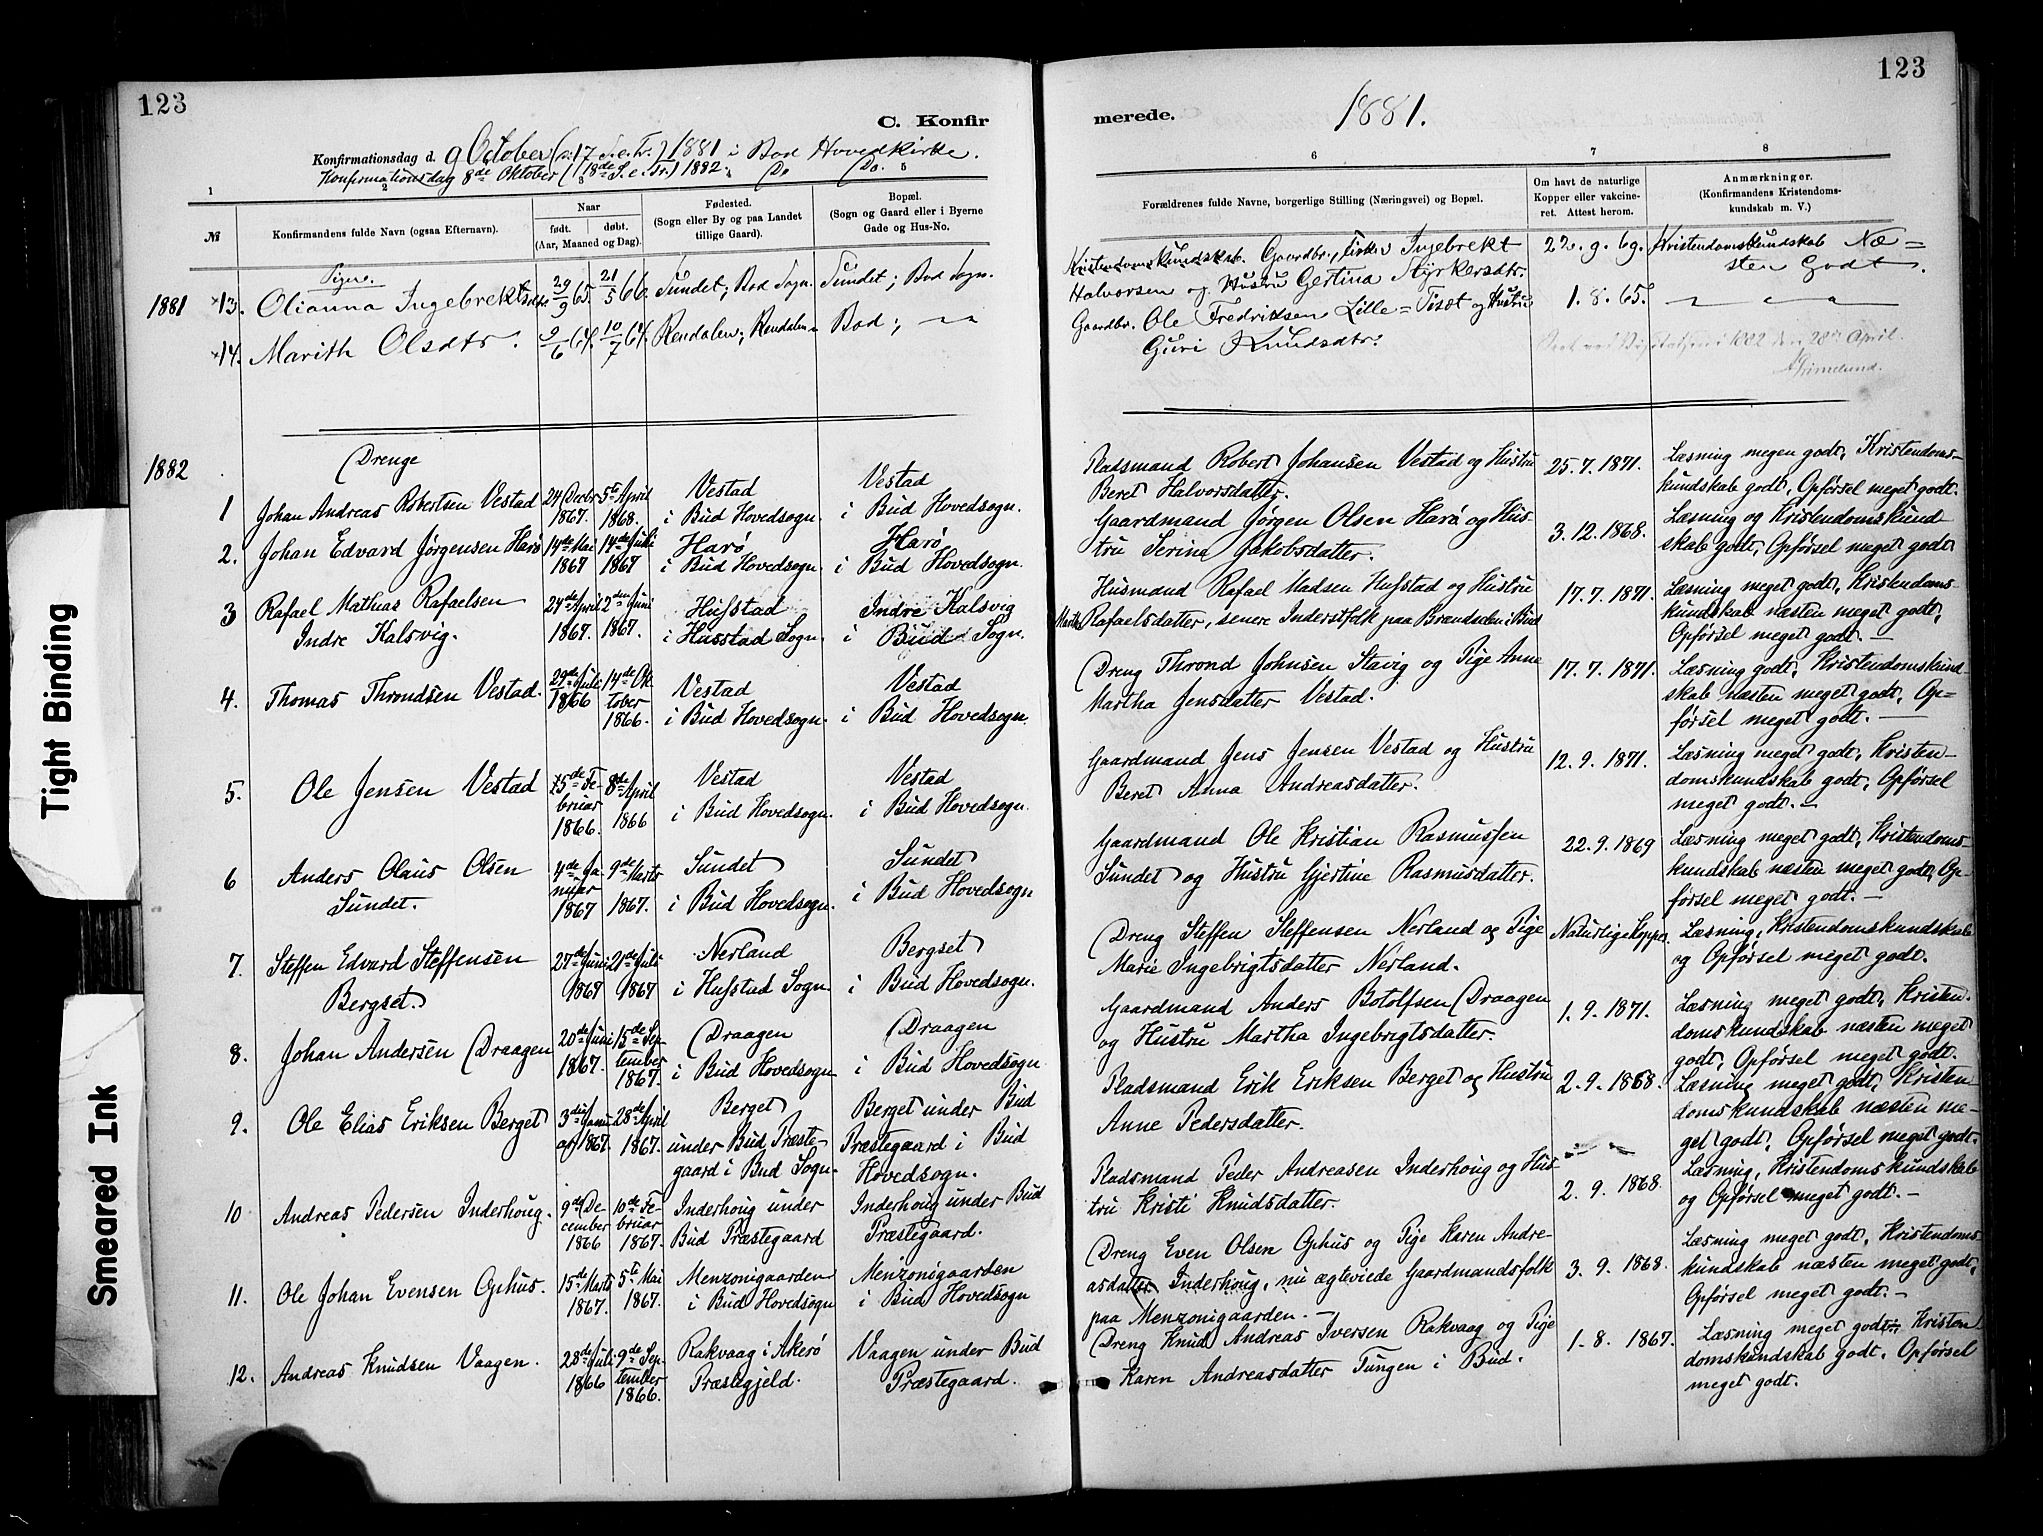 123
123
C. Konfir
merede.
1881.
Konfirmationsdag d. 9 October (: 17 S. e. Tr.) 1881 i Bod Hovedkirke.
Konfirmationsdag 8de Oktober (18de S. e. Tr.) 1882. Do Do.
1 2 3 5 6 7 8
№
Konfirmandens fulde Navn (ogsaa Efternavn).
Naar
født. døbt.
(Aar, Maaned og Dag).
Fødested.
(Sogn eller By og paa Landet
tillige Gaard).
Bopæl.
(Sogn og Gaard eller i Byerne
Gade og Hus-No.
Forældrenes fulde Navne, borgerlige Stilling (Næringsvei) og Bopæl.
Om havt de naturlige
Kopper eller vakcine-
ret. Attest herom.
Anmærkninger.
(Konfirmandens Kristendoms-
kundskab m. V.)
Pigne.
1881 ×13. Olianna Ingebrektsdtr 29/9 65. 21/5 66. Sundet; Bod Sogn. Sundet; Bod Sogn.
Kristendomskundskab. Gaardbr., Fisker Ingebrekt 22. 9. 69. Kristendomskundskab Næ=
Halvorsen og Hustru Gertina Styrkersdtr. sten Godt.
×14. Marith Olsdtr. 9/6 67. 10/7 67. Rendalen; Rendalen Bod;
Gaardbr. Ole Fredriksen Lille=Tisæt og Hustru 1. 8. 65.
Guri Knudsdtr.
1882 den 28de April.
Grimelund.
1882
Drenge
1 Johan Andreas Robertsen Vestad
24 Decbr 1867. 5te April 1868.
Vestad i Bud Hovedsogn.
Vestad i Bud Hovedsogn.
Pladsmand Robert Johansen Vestad og Hustru
Beret Halvorsdatter.
25. 7. 1871.
Læsning megen godt, Kristendoms-
kundskab godt, Opførsel meget godt.
2. Johan Edvard Jørgensen Harø
14de Mai 1867 14de Juli 1867
Harø i Bud Hovedsogn.
Harø i Bud Hovedsogn.
Gaardmand Jørgen Olsen Harø og Hus-
tru Serina Jakobsdatter.
3. 12. 1868.
Læsning og Kristendomskund-
skab godt, Opførsel meget godt
3 Rafael Mathias Rafaelsen
Indre Kalsvig.
24de April 1867. 2den Juni 1867.
Hufstad i Husstad Sogn.
Indre Kalsvig i Bud Sogn.
Husmand Rafael Madsen Hufstad og Hustru
Marith Rafaelsdatter, senere Inderstfolk paa Brændselen i Bud
17. 7. 1871.
Læsning meget godt, Kristendoms-
kundskab næsten meget godt,
Opførsel meget godt. —
4. Thomas Throndsen Vestad.
29de Juli 1866 14de Oktober 1866.
Vestad i Bud Hovedsogn.
Vestad i Bud Hovedsogn.
Dreng Thrond Johnsen Stavig og Pige Anne
Martha Jensdatter Vestad.
17. 7. 1871.
Læsning godt, Kristendomskund-
skab næsten meget godt, Op=
førsel meget godt. —
5. Ole Jensen Vestad
15de Februar 1866. 8de April 1866
Vestad i Bud Hovedsogn.
Vestad i Bud Hovedsogn.
Gaardmand Jens Jensen Vestad og Hustru
Beret Anna Andreasdatter.
12. 9. 1871.
Læsning meget godt, Kristen-
domskundskab godt, Opførsel
meget godt. —
6 Anders Olaus Olsen
Sundet.
4de Januar 1867 9de Marts 1867.
Sundet i Bud Hovedsogn.
Sundet i Bud Hovedsogn
Gaardmand Ole Kristian Rasmussen
Sundet og Hustru Gjertine Rasmusdatter.
22. 9. 1869
Læsning meget godt, Kristendoms
kundskab næsten meget godt, Op-
førsel meget godt. —
7. Steffen Edvard Steffensen
Bergset.
27de Juni 1867 21de Juli 1867
Nerland i Hufstad Sogn.
Bergset i Bud Hovedsogn.
Dreng Steffen Steffensen Nerland og Pige
Marie Ingebrigtsdatter Nerland.
Naturlige Kopper.
Læsning, Kristendomskundskab
og Opførsel meget godt.
8. Johan Andersen Draagen
20de Juni 1867. 15de September 1867.
Draagen i Bud Hovedsogn
Draagen i Bud Hovedsogn
Gaardmand Anders Botolfsen Draagen
og Hustru Martha Ingebrigtsdatter.
1. 9. 1871.
Læsning meget godt, Kristen-
domskundskab næsten meget
godt, Opførsel meget godt.
9. Ole Elias Eriksen Berget
3die Januar 1867. 28de April 1867.
Berget under Bud Præste-
gaard i Bud Sogn.
Berget under Bud
Præstegaard i Bud
Hovedsogn.
Pladsmand Erik Eriksen Berget og Hustru
Anne Pedersdatter.
2. 9. 1868.
Læsning meget godt, Kristen-
domskundskab næsten me-
get godt, Opførsel meget godt.
10 Andreas Pedersen Inderhoug.
9de December 1866 10de Februar 1867.
Inderhoug under
Bud Præstegaard
Inderhoug under Bud
Præstegaard.
Pladsmand Peder Andreasen Inderhoug og Hus-
tru Kristi Knudsdatter.
2. 9. 1868.
Læsning, Kristendomskundskab
og Opførsel meget godt. —
11. Ole Johan Evensen Ophus.
15de Marts 1867. 5te Mai 1867.
Menzonigaarden
i Bud Hovedsogn
Menzonigaarden
i Bud Hovedsogn
Dreng Even Olsen Ophus og Pige Karen Andre-
asdatter Inderhoug, nu ægteviede Gaardmandsfolk
paa Menzonigaarden. —
3. 9. 1868.
Læsning meget godt, Kristendoms-
kundskab næsten meget godt,
Opførsel meget godt. —
12. Andreas Knudsen Vaagen.
28de Juli 1866 9de September 1866.
Rakvaag i Akerø
Præstegjeld.
Vaagen under Bud
Præstegaard.
Dreng Knud Andreas Iversen Rakvaag og Pige
Karen Andreasdatter Tungen i Bud.
1. 8. 1867.
Læsning meget godt, Kristen
domskundskab godt, Opførsel
meget godt.
Tight Binding
Smeared Ink